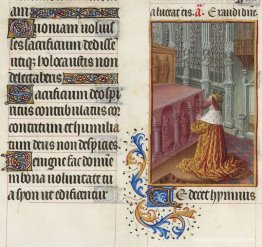 am
Quoniam voluiss
les sacrificium dedisse
utique holocaustis non
delectaberis
Sacrificium deo spi
ritus contribulatus cor
contritum et humilia
tum deus non despicies
Benigne fac domine
in bona voluntate tu
a syon ut edificentur
a luctatus
Exaudi do
Te decet hymnus